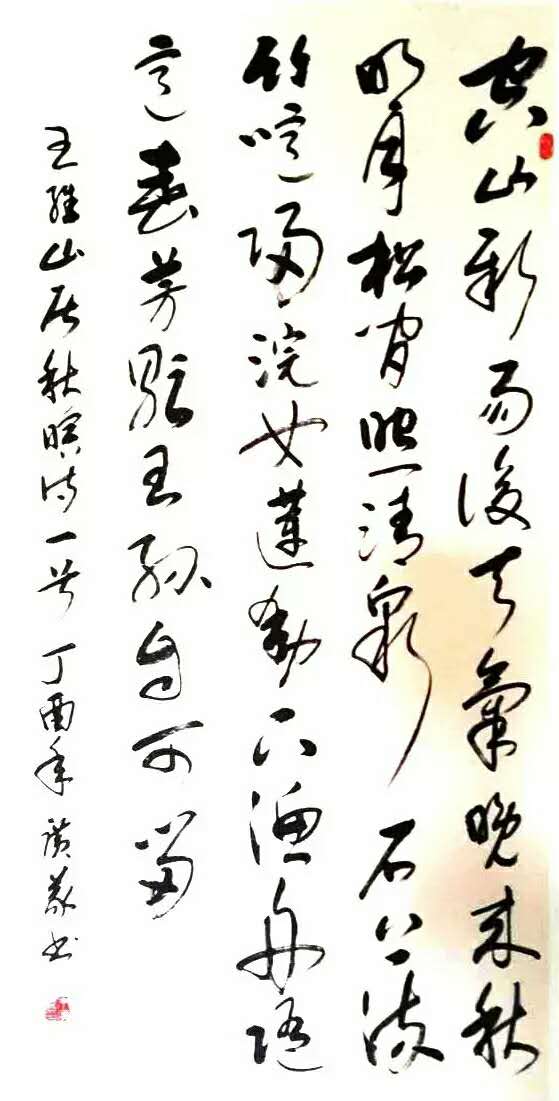 空山新雨後天氣晚来秋
明月松间照清泉石上流
竹喧歸浣女蓮動下漁舟随
意春芳歇王孫自可留
王維山居秋暝诗一首丁酉年书